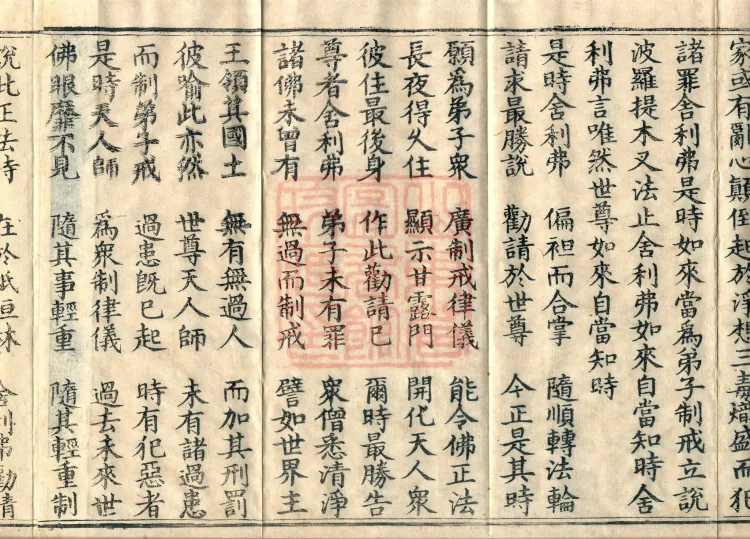 家或有亂心顛倒起於淨想三毒熾盛而犯
諸罪舍利弗是時如來當為弟子制戒立說
波羅提木叉法止舍利弗如來自當知時舍
利弗言唯然世尊如來自當知時
是時舍利弗 偏袒而合掌 隨順轉法輪
請求最勝說 勸請於世尊 今正是其時
願為弟子眾 廣制戒律儀 能令佛正法
長夜得久住 顯示甘露門 開化天人眾
彼住最後身 作此勸請已 爾時最勝告
尊者舍利弗 弟子未有罪 眾僧悉清淨
諸佛未曾有 無過而制戒 譬如世界主
王領其國土 無有無過人 而加其刑罰
彼喻此亦然 世尊天人師 未有諸過患
而制弟子戒 過患既已起 時有犯惡者
是時天人師 為眾制律儀 過去未來世
佛眼靡不見 隨其事輕重 隨其輕重制
說此正法時 在於祇洹林 舍利弗勸請